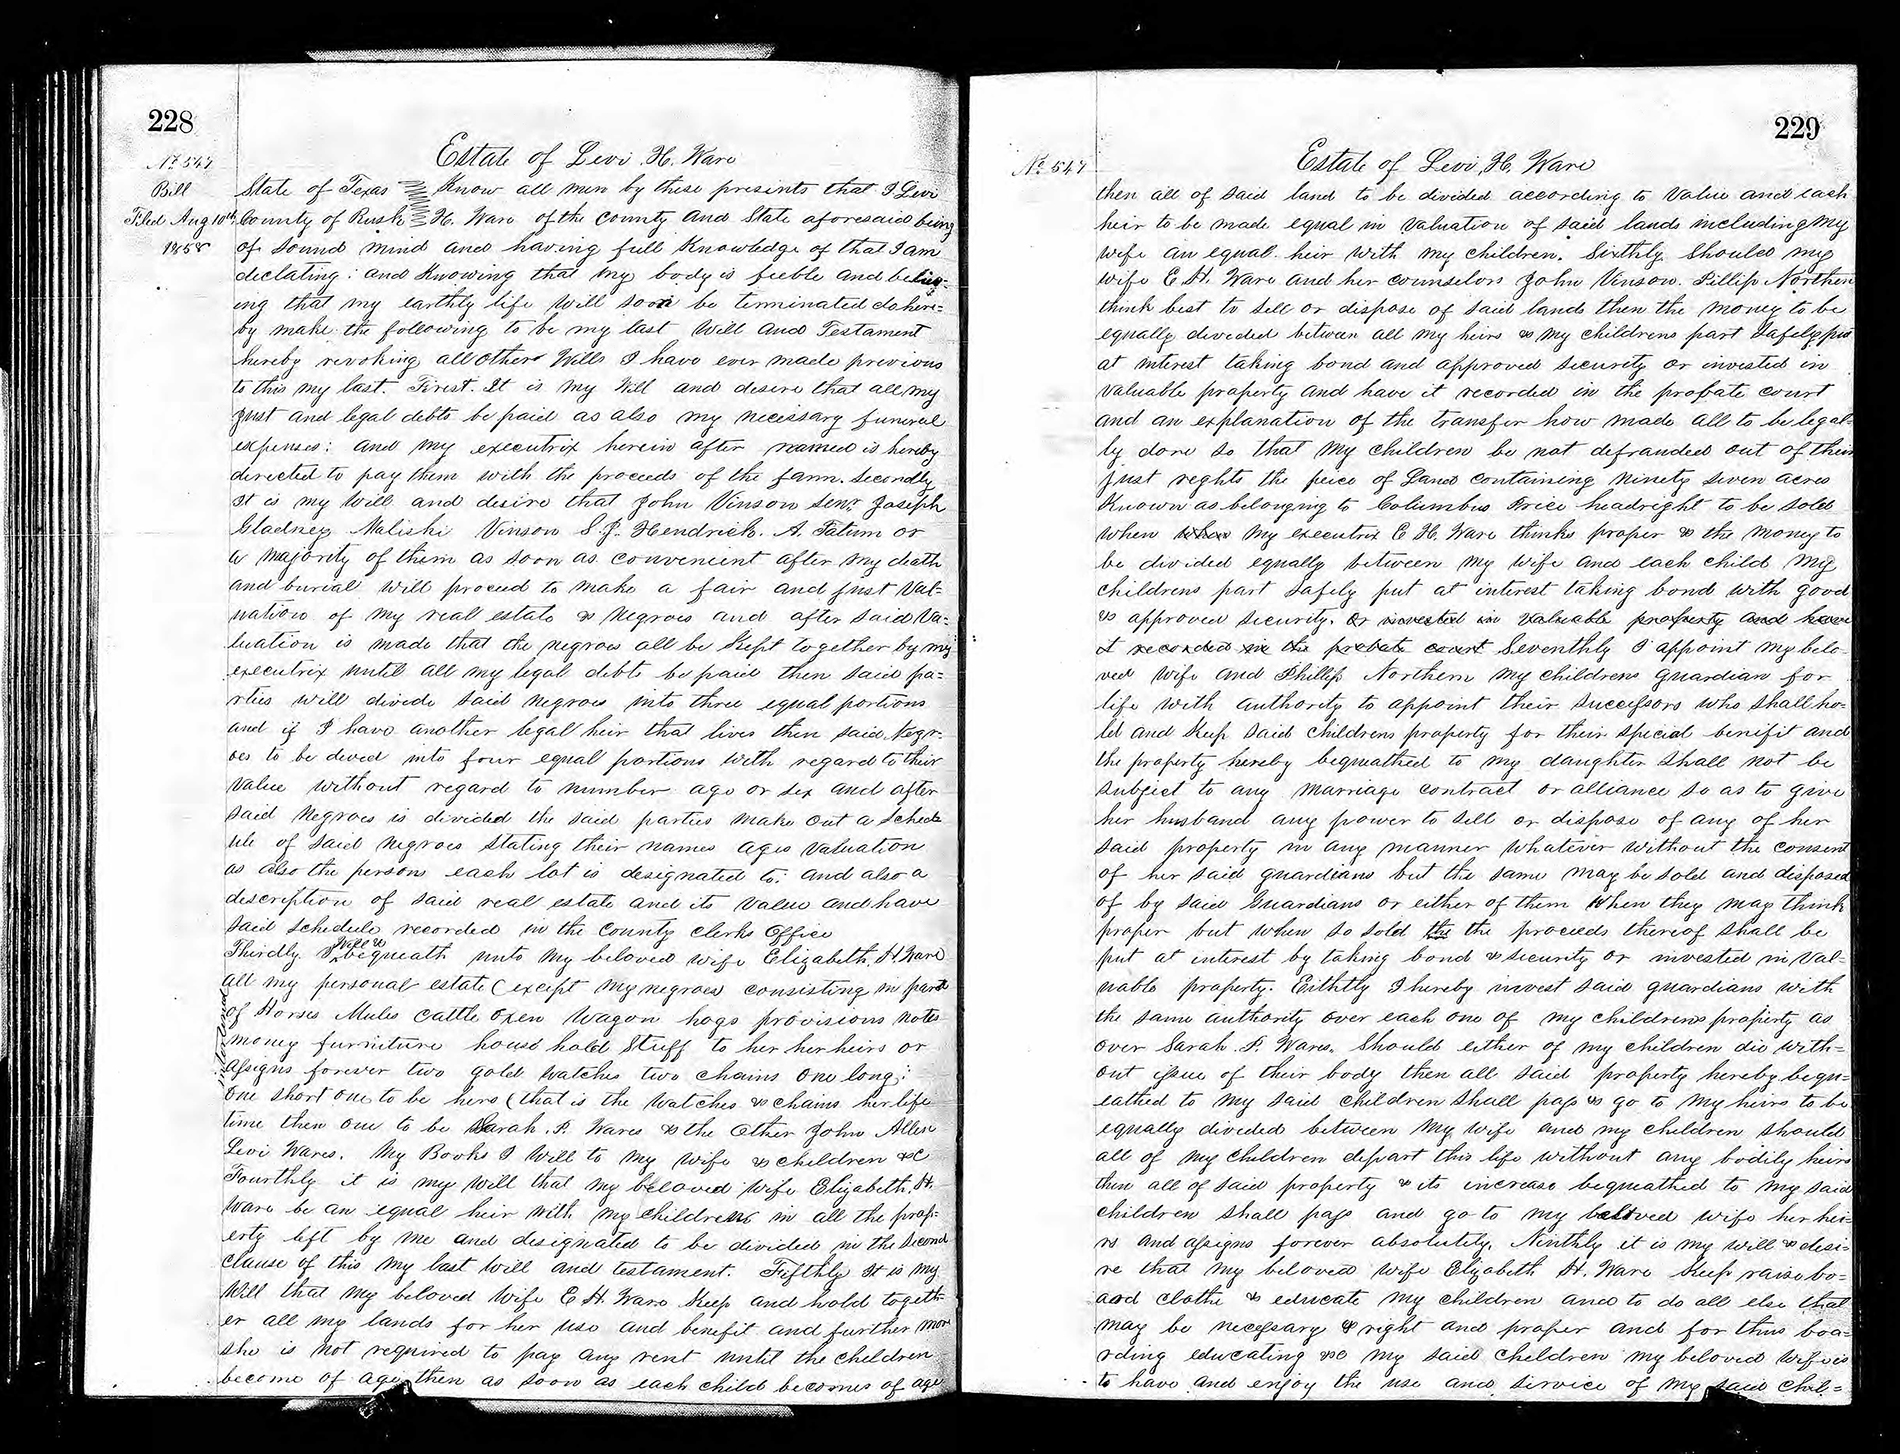 228
Estate of Levi H. Ware
No 547
Bill
Filed Aug 10th
1858
State of Texas Know all men by these presents that I Levi
County of Rusk H. Ware of the County and State aforesaid being
of sound mind and having full Knowledge of that I am
declating: and Knowing that my body is feeble and beliey-
ing that my earthly life will soon be terminated do here=
by make the following to be my last Will and Testament
hereby revoking all other Wills I have ever made previous
to this my last. First. It is my Will and desire that all my
just and legal debts be paid as also my necessary funeral
expenses: and my executrix herein after named is hereby
directed to pay them with the proceeds of the farm. Secondly
It is my Will and desire that John Vinson Senr. Joseph
Gladney Maliski Vinson S. J. Hendrick. A. Tatum or
a majority of them as soon as convenient after my death
and burial will proceed to make a fair and just Val=
uation of my real estate & Negroes and after said Va=
luation is made that the negroes all be Kept together by my
executrix until all my legal debts be paid then said pa=
rties will divide said negroes into three equal portions
and if I have another legal heir that lives then said Negr-
oes to be dived into four equal portions with regard to their
Value without regard to number age or sex and after
said Negroes is divided the said parties make out a Sched
ule of said negroes stating their names ages Valuation
as also the persons each lot is designated to: and also a
description of said real estate and its Value and have
said schedule recorded in the County Clerks Office
Thirdly I Will & bequeath unto my beloved wife Elizabeth. H. Ware
all my personal estate (except my negroes consisting in part
of Horses Mules Cattle Oxen Wagon hogs provisions notes
money furniture house hold Stuff to her her heirs or
assigns forever two gold watches two chains one long:
one short one to be hers (that is the Watches & chains her life
time then one to be Sarah. P. Wares & the Other John Allen
Levi Wares. My Books I Will to my wife & children &c
Fourthly it is my will that my beloved wife Elizabeth. H.
Ware be an equal heir with my children in all the prop-
erty left by me and designated to be divided in the Second
clause of this my last will and testament. Fifthly It is my
Will that my beloved wife E H. Ware Keep and hold togeth-
er all my lands for her use and benefit and further more
she is not required to pay any rent until the children
become of age then as soon as each child becomes of age
229
No 547
Estate of Levi, H. Ware
then all of said land to be divided according to Value and each
heir to be made equal in Valuation of said lands including My
wife an equal heir with my children. Sixthly Should my
wife E H. Ware and her counselors John Vinson. Pillip Northen
think best to sell or dispose of said lands then the money to be
equally divided between all my heirs & my childrens part Safely put
at interest taking bond and approved security or invested in
Valuable property and have it recorded in the probate court
and an explanation of the transfer how made all to be legal-
ly done so that my children be not defrauded out of their
just reghts the peice of Land containing ninety seven acres
Known as belonging to Columbus Price headright to be sold
when when my executrix E H. Ware thinks proper & the money to
be divided equally between my wife and each child My
childrens part safely put at interest taking bond with good
& approved security. Or invested in Valuable property and have
it recorded in the probate court Seventhly I appoint my belo-
ved wife and Phillip Northern my childrens guardian for
life with authority to appoint their successors who shall ho-
ld and Keep said childrens property for their special benifit and
the property hereby bequeathed to my daughter shall not be
subject to any marriage contract or alliance so as to give
her husband any power to sell or dispose of any of her
said property in any manner whatever without the consent
of her said guardians but the same may be sold and disposed
of by said Guardians or either of them When they may think
proper but when so sold the the proceeds thereof shall be
put at interest by taking bond & security or invested in Val-
uable property. Eithtly I hereby invest said guardians with
the same authority over each one of my childrens property as
over Sarah. P. Wares. Should either of my children die with=
out issue of their body then all said property hereby bequ=
eathed to my said children shall pass & go to my heirs to be
equally divided between my wife and my children should
all of my children depart this life without any bodily heirs
then all of said property & its increase bequeathed to my said
children shall pass and go to my beloved wife her hei=
rs and assigns forever absolutely. Ninthly it is my will & desi=
re that my beloved wife Elizabeth H. Ware Keep raise bo=
ard clothe & educate my children and to do all else that
may be necessary & right and proper and for thus boa=
rding educating &c my said children my beloved wife is
to have and enjoy the use and service of my said chil=